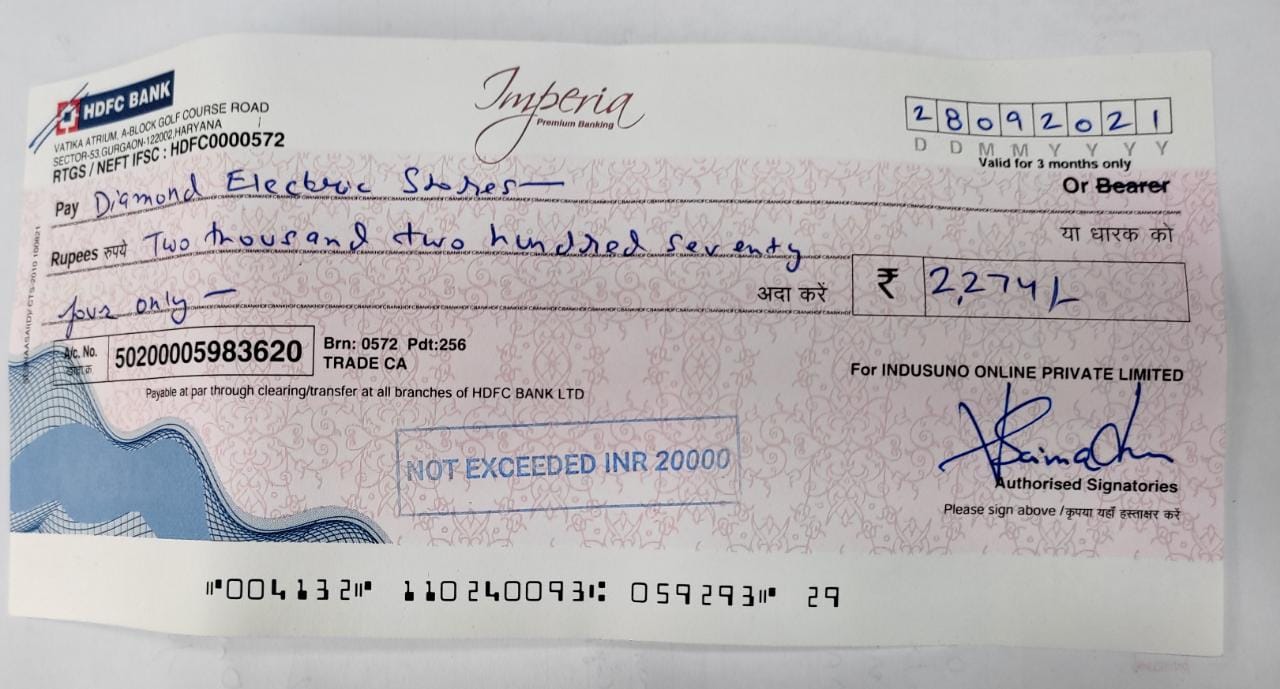 HDFC BANK
VATIKA ATRIUM, A-BLOCK GOLF COURSE ROAD
SECTOR-53, GURGAON-122002, HARYANA
RTGS / NEFT IFSC : HDFC0000572
Imperia
Premium Banking
28092021
D D M M Y Y Y Y
Valid for 3 months only
Pay Diamond Electric Stores—
Or Bearer
या धारक को
Rupees रुपये Two thousand two hundred seventy
four only —
अदा करें
₹ 2,274/-
A/c. No.
50200005983620
Brn: 0572 Pdt:256
TRADE CA
Payable at par through clearing/transfer at all branches of HDFC BANK LTD
For INDUSUNO ONLINE PRIVATE LIMITED
NOT EXCEEDED INR 20000
Authorised Signatories
Please sign above / कृपया यहाँ हस्ताक्षर करें
⑈004132⑈ 110240093⑆ 059293⑈ 29